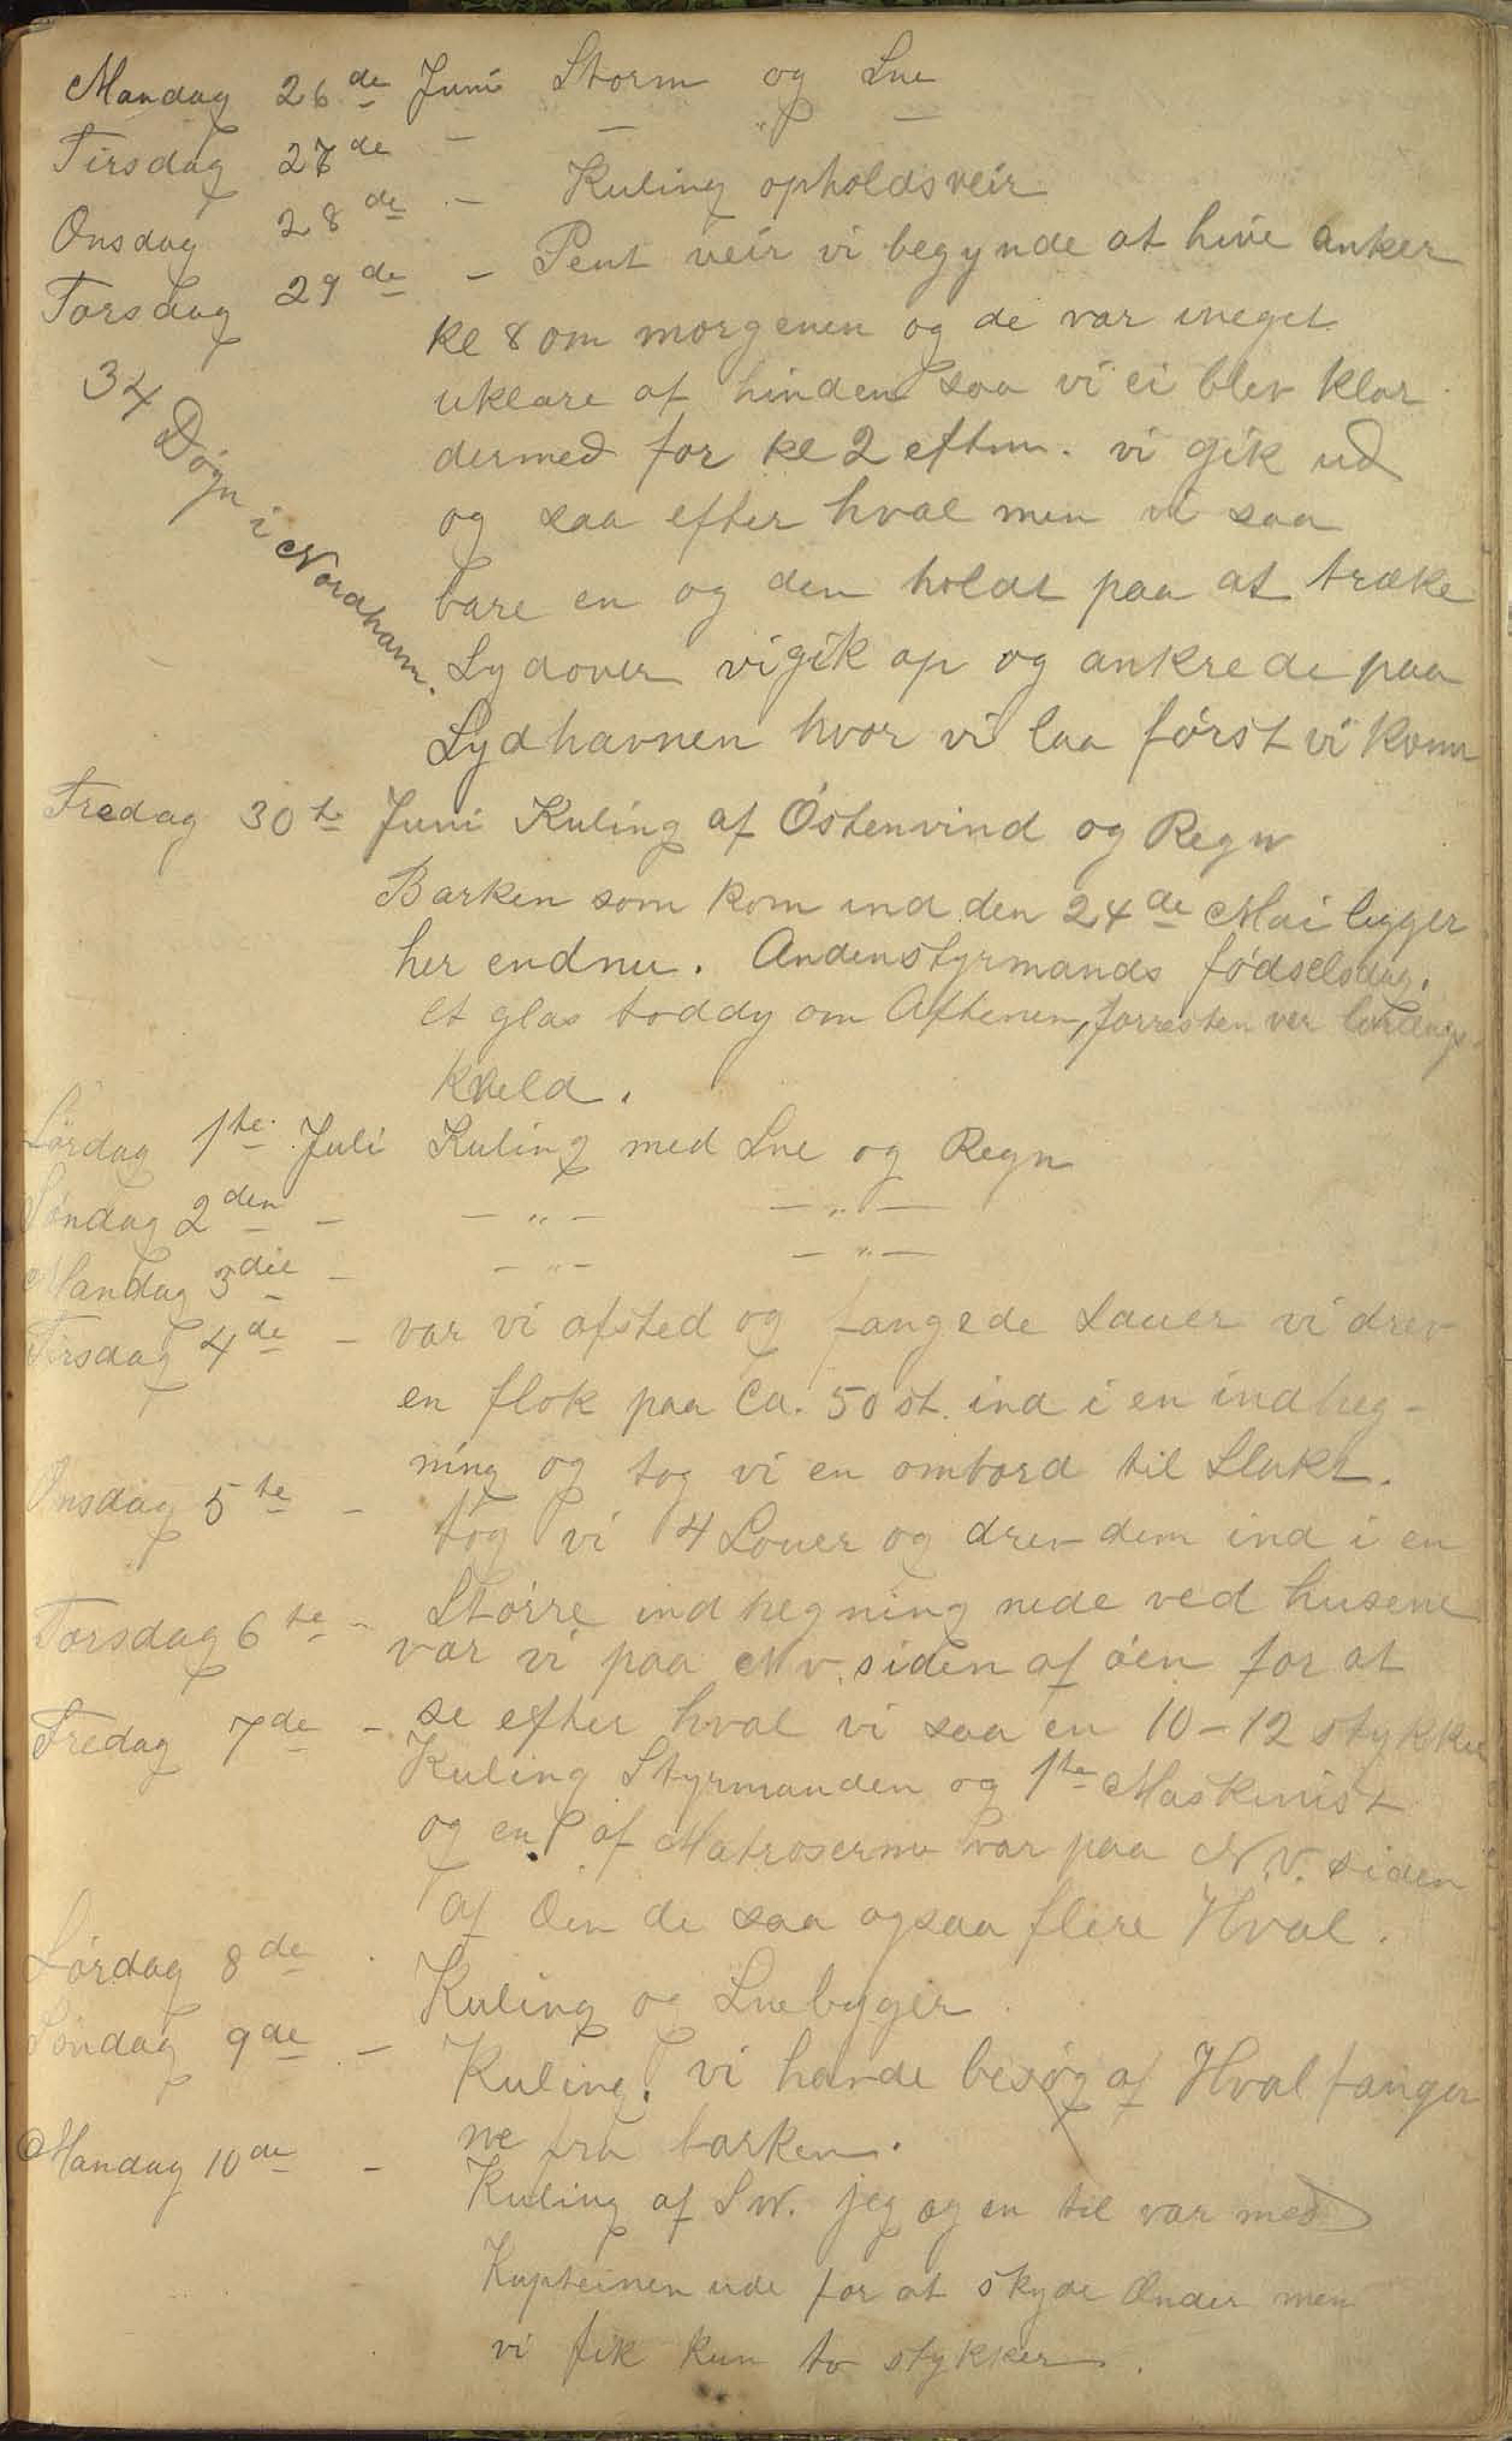 Mandag 26de Juni Storm og Sne
Tirsdag 27de - - " -
Onsdag 28de - Kuling opholdsveir
Torsdag 29de - Pent veir vi begynde at hive anker
kl 8 om morgenen og de var meget
uklare af hinden saa vi ei blev klar
dermed for kl 2 eftm. vi gik ud
og saa efter hval men vi saa
bare en og den holdt paa at træke
Sydover vi gik op og ankrede paa
Sydhavnen hvor vi laa først vi kom
34 Døgn i Nordhavn.
Fredag 30te Juni Kuling af Østenvind og Regn
Barken som kom ind den 24de Mai ligger
her endnu. Andenstyrmands fødselsdag.
et glas toddy om Aftenen, forresten var
kveld.
Lørdag 1ste Juli Kuling med Sne og Regn
Søndag 2den - - " - - " -
Mandag 3die - - " - - " -
Tirsdag 4de - var vi afsted og fangede Sauer vi drev
en flok paa Ca. 50 st. ind i en indheg-
ning og tog vi en ombord til Slakt.
Onsdag 5te - tog vi 4 Souer og drev dem ind i en
Større indhegning nede ved husene
Torsdag 6te - var vi paa Nv. siden af øen for at
se efter hval vi saa en 10-12 stykker
Fredag 7de - Kuling Styrmanden og 1ste Maskinist
og en af Matroserne var paa N.V. siden
af Øen de saa ogsaa flere Hval.
Lørdag 8de Kuling og Snebyger
Søndag 9de - Kuling. vi havde besøg af Hvalfanger
ne fra barken.
Mandag 10de - Kuling af SW. jeg og en til var med
Kapteinen ude for at skyde Ænder men
vi fik kun to stykker.